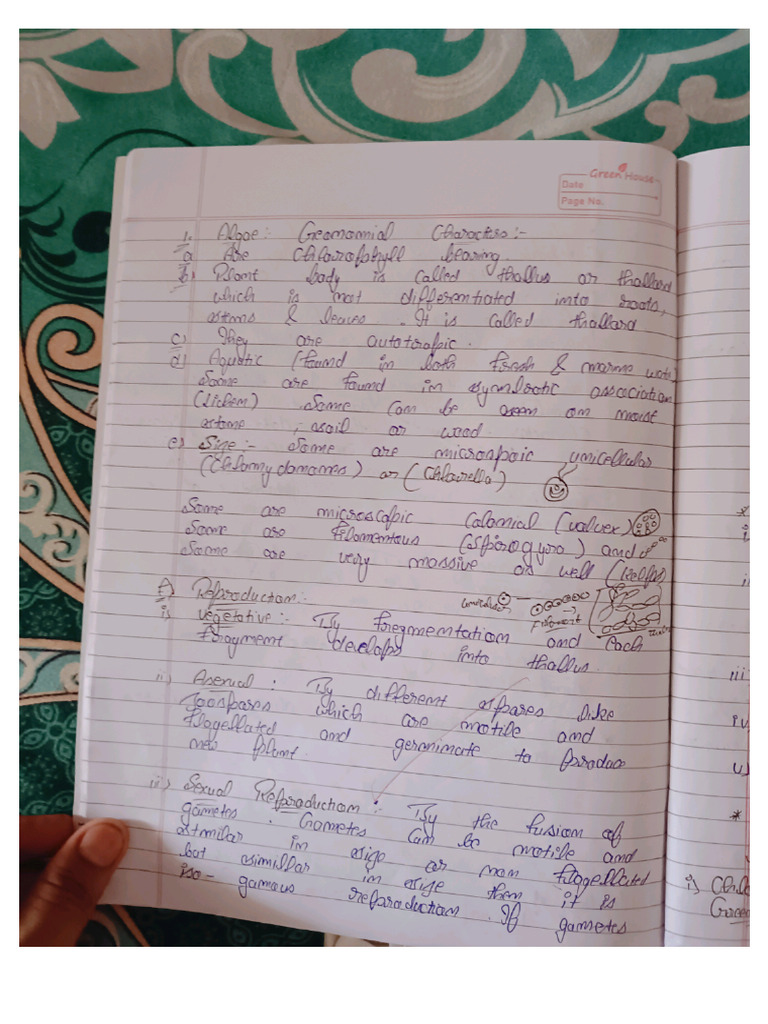 Green House
Date
Page No.
1. Algae : Geomomial Characters :-
a) Are Chlorophyll bearing.
b) Plant body is called thallus or thallard
which is not differentiated into roots,
stems & leaves . It is called thallard
c) They are autotropic.
d) Aquatic (found in both fresh & marine water)
Some are found in symbiotic association
(lichen) Some can be seen on moist
stone , soil or wood.
e) Size :- Some are microspoic unicellular
(Chlamydomones) or (Chlorella)
Some are microscopic colonial (volvex)
Some are filamentous (spirogyra) and
Some are very massive as well (Kelps)
f) Reproduction :-
i) vegetative :- By fregmentation and Each
Fragment
fragment develops into thallus.
ii) Asexual : By different spores like
Zoospores which are motile and
flagellated and geranimate to produce
new plant.
iii) Sexual Reproduction : By the fusion of
gametes . Gametes can be motile and
similar in size or non flagellated
but similar in size then it is
iso - gamous reproduction . If gametes
*
i
ii
iii
iv
v)
*
i) Chl